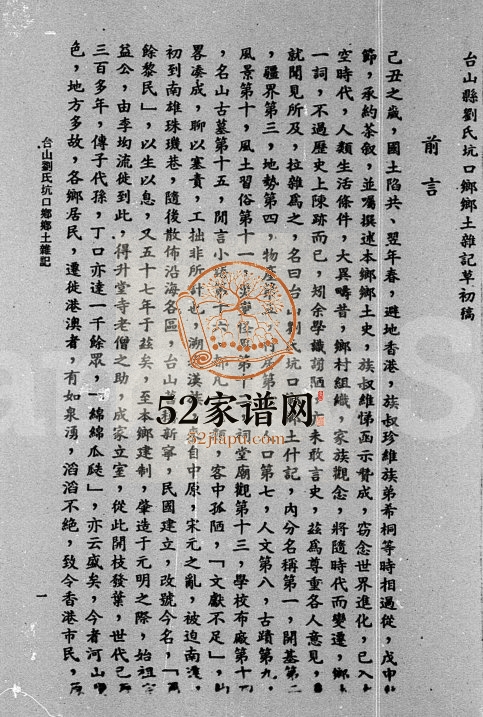 台山縣劉氏坑口鄉鄉土雜記草初稿
前言
己丑之歲，國土陷共、翌年春，避地香港，族叔珍維族弟希桐等時相過從，戊申
節，承約茶叙，並囑撰述本鄉鄉土史，族叔維悌函示贊成，窃念世界進化，已入
空時代，人類生活條件，大異疇昔，鄉村組織，家族觀念，將隨時代而變遷，鄉
一詞，不過歷史上陳跡而已，矧余學識謭陋，未敢言史，茲爲尊重各人意見，
就聞見所及，拉雜爲之，名曰台山劉氏坑口鄉土什記，內分名稱第一，開基第二
，疆界第三，地勢第四，物產第五，第口第七，人文第八，古蹟第九，
風景第十，風土習俗第十一，災變怪異第十祠堂廟觀第十三，學校布廠第十四
，名山古墓第十五，閒言小語第十六，都凡類，客中孤陋，「文獻不足」，
畧湊成，聊以塞責，工拙非所計也，溯漢族來自中原，宋元之亂，被迫南渡，
初到南雄珠璣巷，隨後散佈沿海各區，台山新寧，民國建立，改號今名，「
餘黎民」，以生以息，又五十七年于茲矣，至本鄉建制，肇造于元明之際，始祖
益公，由李坳流徙到此，得升堂寺老僧之助，成家立室，從此開枝發葉，世代已
三百多年，傳子代孫，丁口亦達一千餘眾，「綿綿瓜瓞」，亦云盛矣，今者河山
色，地方多故，各鄉居民，遷徙港澳者，有如泉湧，滔滔不絕，致令香港市民，
台山劉氏坑口鄉鄉土雜記
一
52家谱网
52jiapu.com